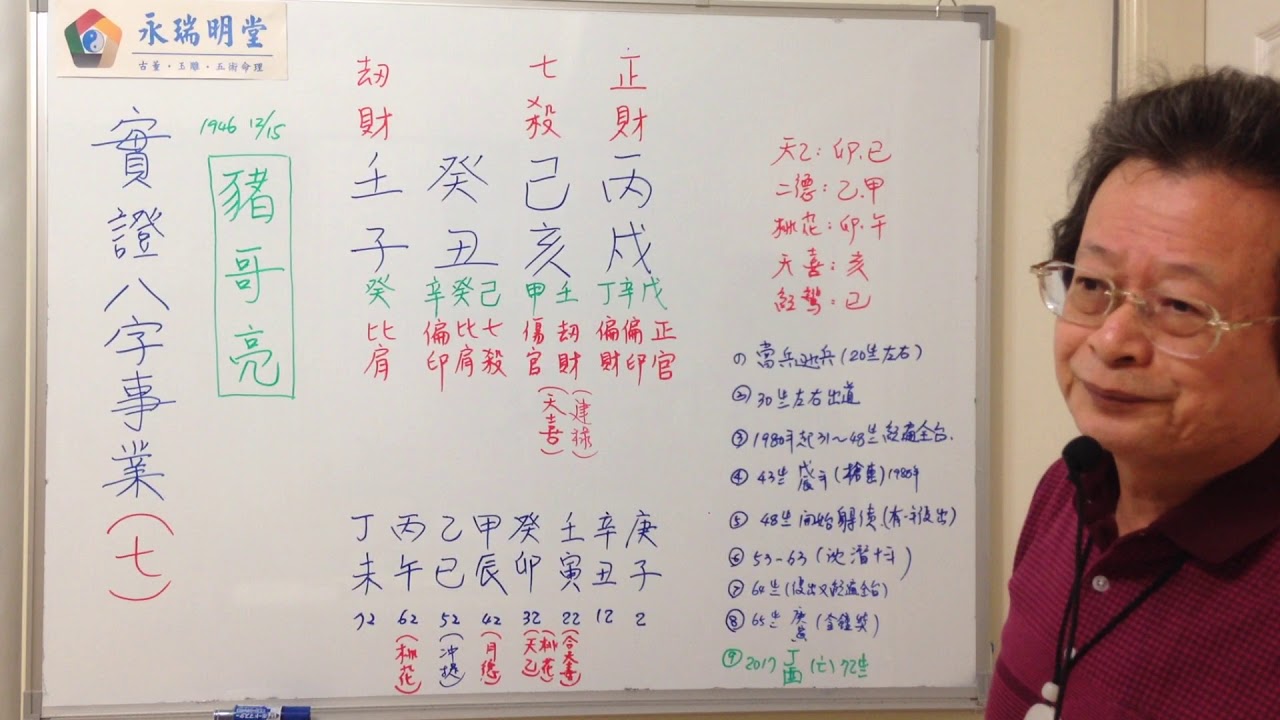 永瑞明堂
古董・玉雕・五術命理
實證八字事業(七)
1946 12/15
豬哥亮
劫財 七殺 正財
壬 癸 己 丙
子 丑 亥 戌
癸 辛癸己 甲壬 丁辛戊
比肩 偏印 比肩 七殺 傷官 劫財 偏財 偏印 正官
(天喜)
丁 丙 乙 甲 癸 壬 辛 庚
未 午 巳 辰 卯 寅 丑 子
72 62 52 42 32 22 12 2
(桃花) (冲提) (月德) (桃花天乙)
天乙:卯.巳
二德:乙.甲
桃花:卯.午
天喜:亥
紅鸞:巳
① 當兵逃兵(20岁左右)
② 30岁左右出道
③ 1980年起31~48岁紅遍全台.
④ 43岁 (槍擊)
⑤ 48岁開始躲債.
⑥ 53-63(沈潛十年)
⑦ 64岁(復出又紅遍全台)
⑧ 65岁 庚寅(金鐘獎)
⑨ 2017 丁酉 (亡) 72岁